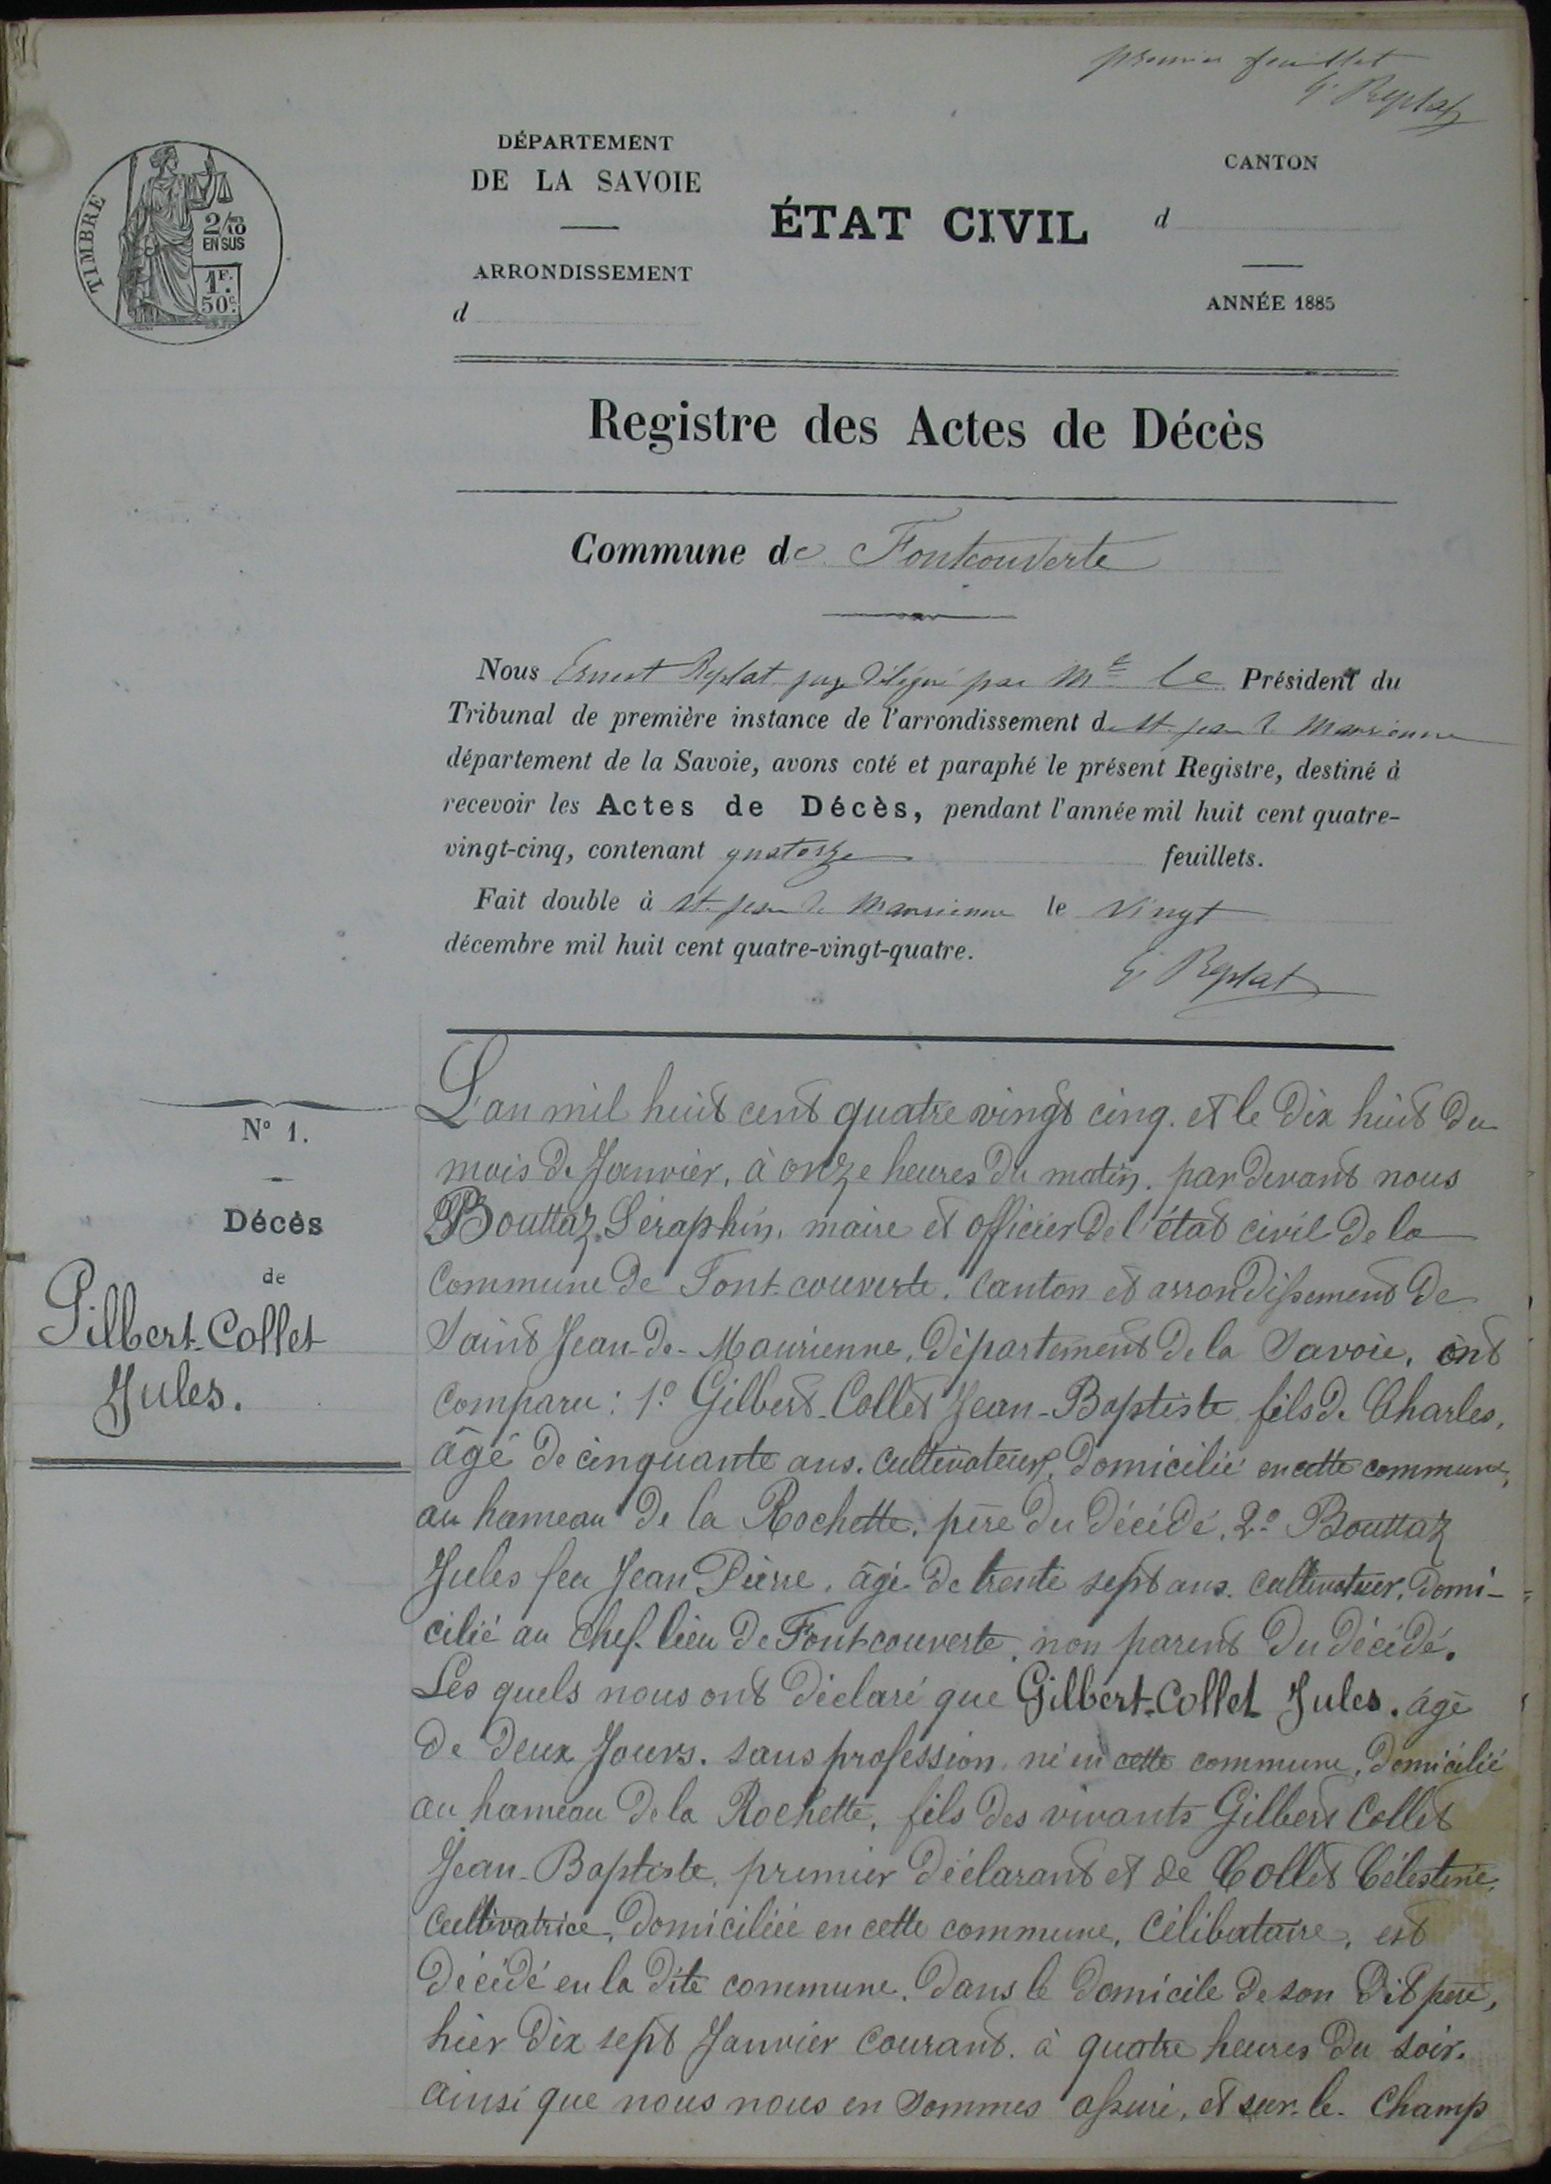 premier feuillet
E. Replat
TIMBRE
2/10
EN SUS
1F.
50c.
DÉPARTEMENT
DE LA SAVOIE
ARRONDISSEMENT
d
ÉTAT CIVIL
CANTON
d
ANNÉE 1885
Registre des Actes de Décès
Commune de Fontcouverte
Nous Ernest Replat juge délégué par Mr le Président du
Tribunal de première instance de l'arrondissement de St jean de Maurienne
département de la Savoie, avons coté et paraphé le présent Registre, destiné à
recevoir les Actes de Décès, pendant l'année mil huit cent quatre-
vingt-cinq, contenant quatorze feuillets.
Fait double à St. jean de Maurienne le vingt
décembre mil huit cent quatre-vingt-quatre.
E. Replat
No 1.
Décès
de
Gilbert-Collet
Jules.
L'an mil huit cent quatre vingt cinq. et le dix huit du
mois de Janvier, à onze heures du matin. par devant nous
Bouttaz Séraphin, maire et officier de l'état civil de la
Commune de Font-couverte. Canton et arrondissement de
Saint Jean-de-Maurienne, département de la Savoie, ont
Comparu: 1o Gilbert-Collet Jean-Baptiste fils de Charles,
âgé de cinquante ans. cultivateur, domicilié en cette commune,
au hameau de la Rochette, père du décédé, 2o Bouttaz
Jules feu Jean Pierre, âgé de trente sept ans. cultivateur, domi-
cilié au chef-lieu de Font-couverte, non parent du décédé.
Les quels nous ont déclaré que Gilbert-Collet Jules. âgé
de deux Jours. sans profession, né en cette commune, domicilié
au hameau de la Rochette, fils des vivants Gilbert Collet
Jean-Baptiste, premier déclarant et de Collet Célestine,
Cultivatrice, domiciliée en cette commune, Célibataire, est
décédé en la dite commune. dans le domicile de son dit père,
hier dix sept Janvier Courant. à quatre heures du soir.
ainsi que nous nous en sommes assuré, et sur-le-Champ